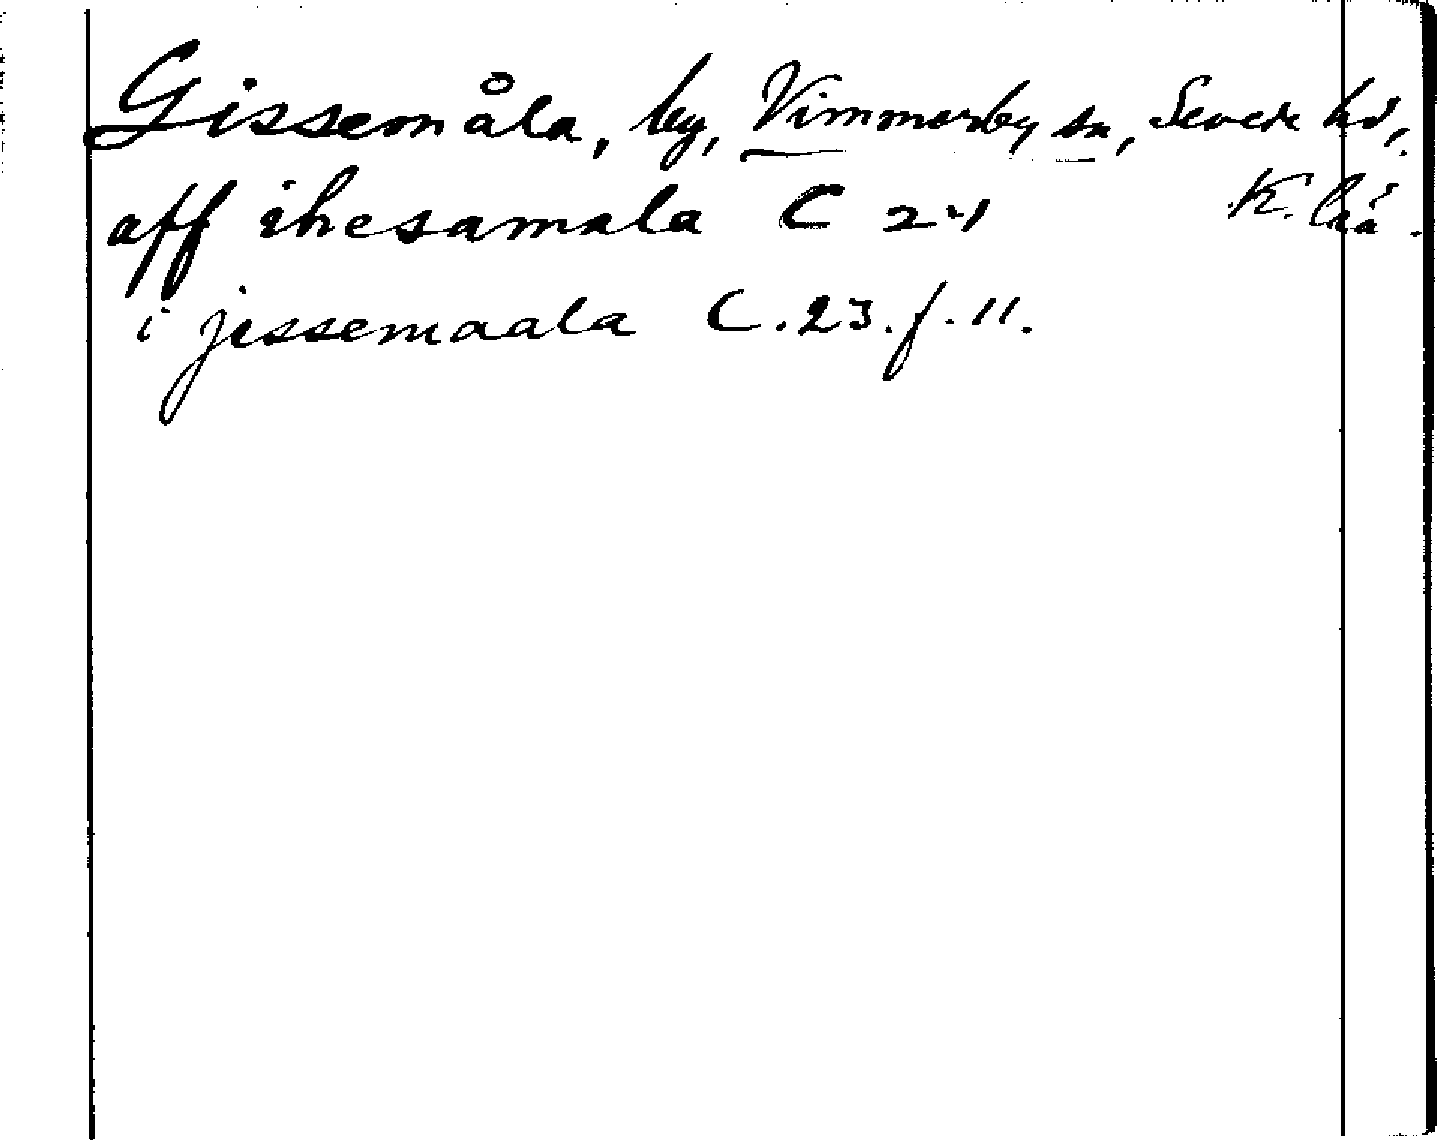 Gissemåla, by, Vimmerby sn, Sevede hd,
aff ihesamala C 24 K. län.
i jessemaala C. 23. f. 11.